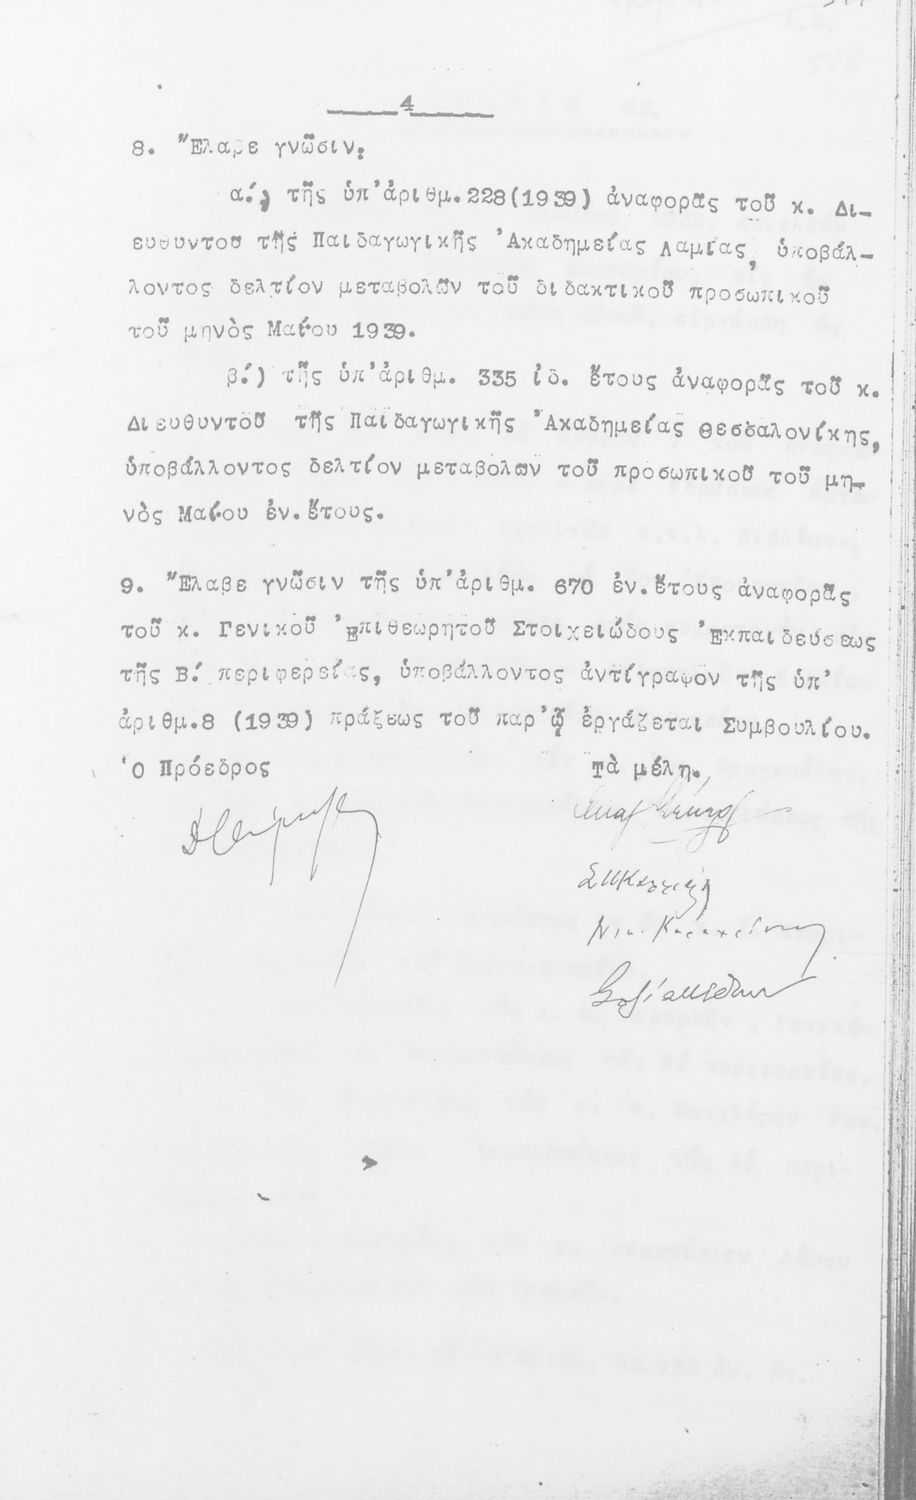 4
8. Ἔλαβε γνῶσιν:
α.΄) τῆς ὑπ' ἀριθμ.228(1939) ἀναφορᾶς τοῦ κ. Δι-
ευθυντοῦ τῆς Παιδαγωγικῆς Ἀκαδημείας Λαμίας, ὑποβάλ-
λοντος δελτίον μεταβολῶν τοῦ διδακτικοῦ προσωπικοῦ
τοῦ μηνὸς Μαΐου 1939.
β.΄) τῆς ὑπ' ἀριθμ. 335 ἰδ. ἔτους ἀναφορᾶς τοῦ κ.
Διευθυντοῦ τῆς Παιδαγωγικῆς Ἀκαδημείας Θεσσαλονίκης,
ὑποβάλλοντος δελτίον μεταβολῶν τοῦ προσωπικοῦ τοῦ μη-
νὸς Μαΐου ἐν.ἔτους.
9. Ἔλαβε γνῶσιν τῆς ὑπ' ἀριθμ. 670 ἐν.ἔτους ἀναφορᾶς
τοῦ κ. Γενικοῦ Ἐπιθεωρητοῦ Στοιχειώδους Ἐκπαιδεύσεως
τῆς Β.΄ περιφερείας, ὑποβάλλοντος ἀντίγραφον τῆς ὑπ'
ἀριθμ.8 (1939) πράξεως τοῦ παρ' ᾧ ἐργάζεται Συμβουλίου.
Ὁ Πρόεδρος Τὰ μέλη.